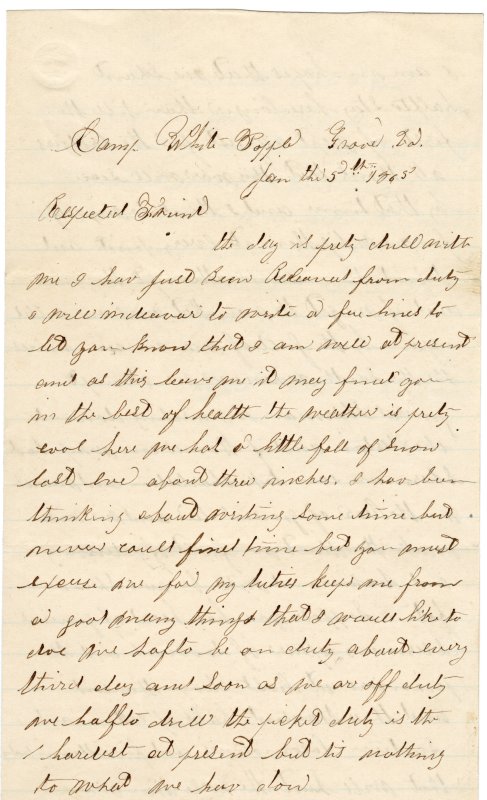 Camp White Popple Grove Va.
Jan the 5th 1865
Respected Friend
the day is prety dull with
me I hav just been Releaved from duty
& will indeavor to write a few lines to
let you know that I am well at present
and as this leavs me it may find you
in the best of health the weather is prety
cool here we had a little fall of snow
last eve about three inches. I hav been
thinking about writing some time but
never could find time but you must
excuse me for my duties keeps me from
a good many things that I would like to
doe we hafto be on duty about every
third day and soon as we ar off duty
we halfto drill the picket duty is the
hardest at present but tis nothing
to what we hav don